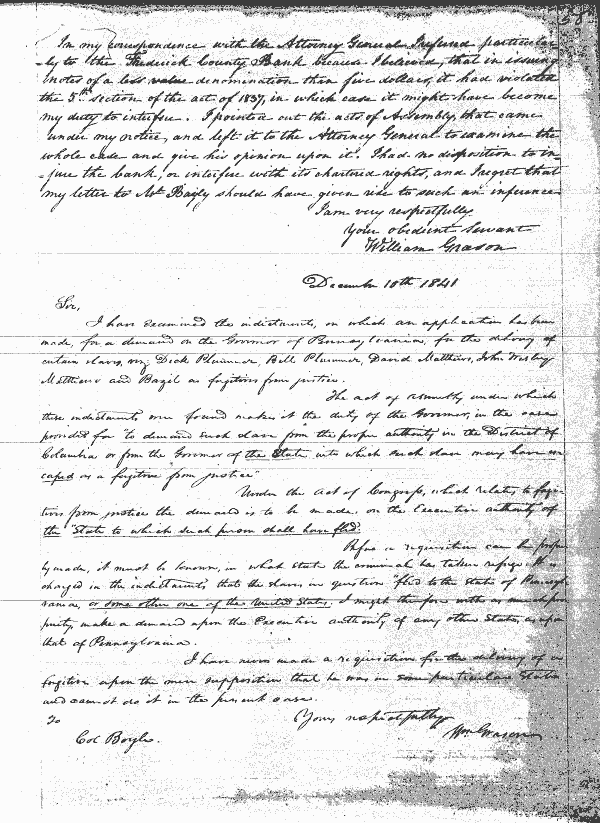 In my correspondence with the Attorney General I refered particular-
-ly to the Frederick County Bank because I believed, that in issuing
notes of a less value denomination than five dollars, it had violated
the 5th section of the act of 1837, in which case it might have become
my duty to interfere. I pointed out the acts of Assembly, that came
under my notice, and left it to the Attorney General to examine the
whole case and give his opinion upon it. I had no disposition to in-
-jure the bank, or interfere with its chartered rights, and I regret that
my letter to Mr Bayly should have given rise to such an inference
I am very respectfully
Your obedient Servant
William Grason
December 10th 1841
Sir,
I have examined the indictments, on which an application has been
made, for a demand on the Governor of Pennsylvania, for the delivery of
certain slaves, viz: Dick Plummer, Bill Plummer, David Matthews, John Wesley
Matthews and Bazil as fugitives from justice.
The act of assembly under which
these indictments were found makes it the duty of the Governor, in the case
provided for "to demand such slave from the proper authority in the District of
Columbia or from the Governor of the State into which such slave may have es-
caped as a fugitive from justice"
Under the act of Congress, which relates to fugi-
tives from justice the demand is to be made on the Executive authority of
the "State to which such person shall have fled."
Before a requisition can be prop-
erly made, it must be known, in what state the criminal has taken refuge. It is
charged in the indictments that the slaves in question "fled to the State of Pennsyl-
vania, or some other one of the United States. I might therefore with as much pro-
priety make a demand upon the Executive authority of any other State, as upon
that of Pennsylvania.
I have never made a requisition for the delivery of a
fugitive upon the mere supposition that he was in some particular State
and cannot do it in the present case.
To
Yours respectfully
Col Boyle.
Wm Grason